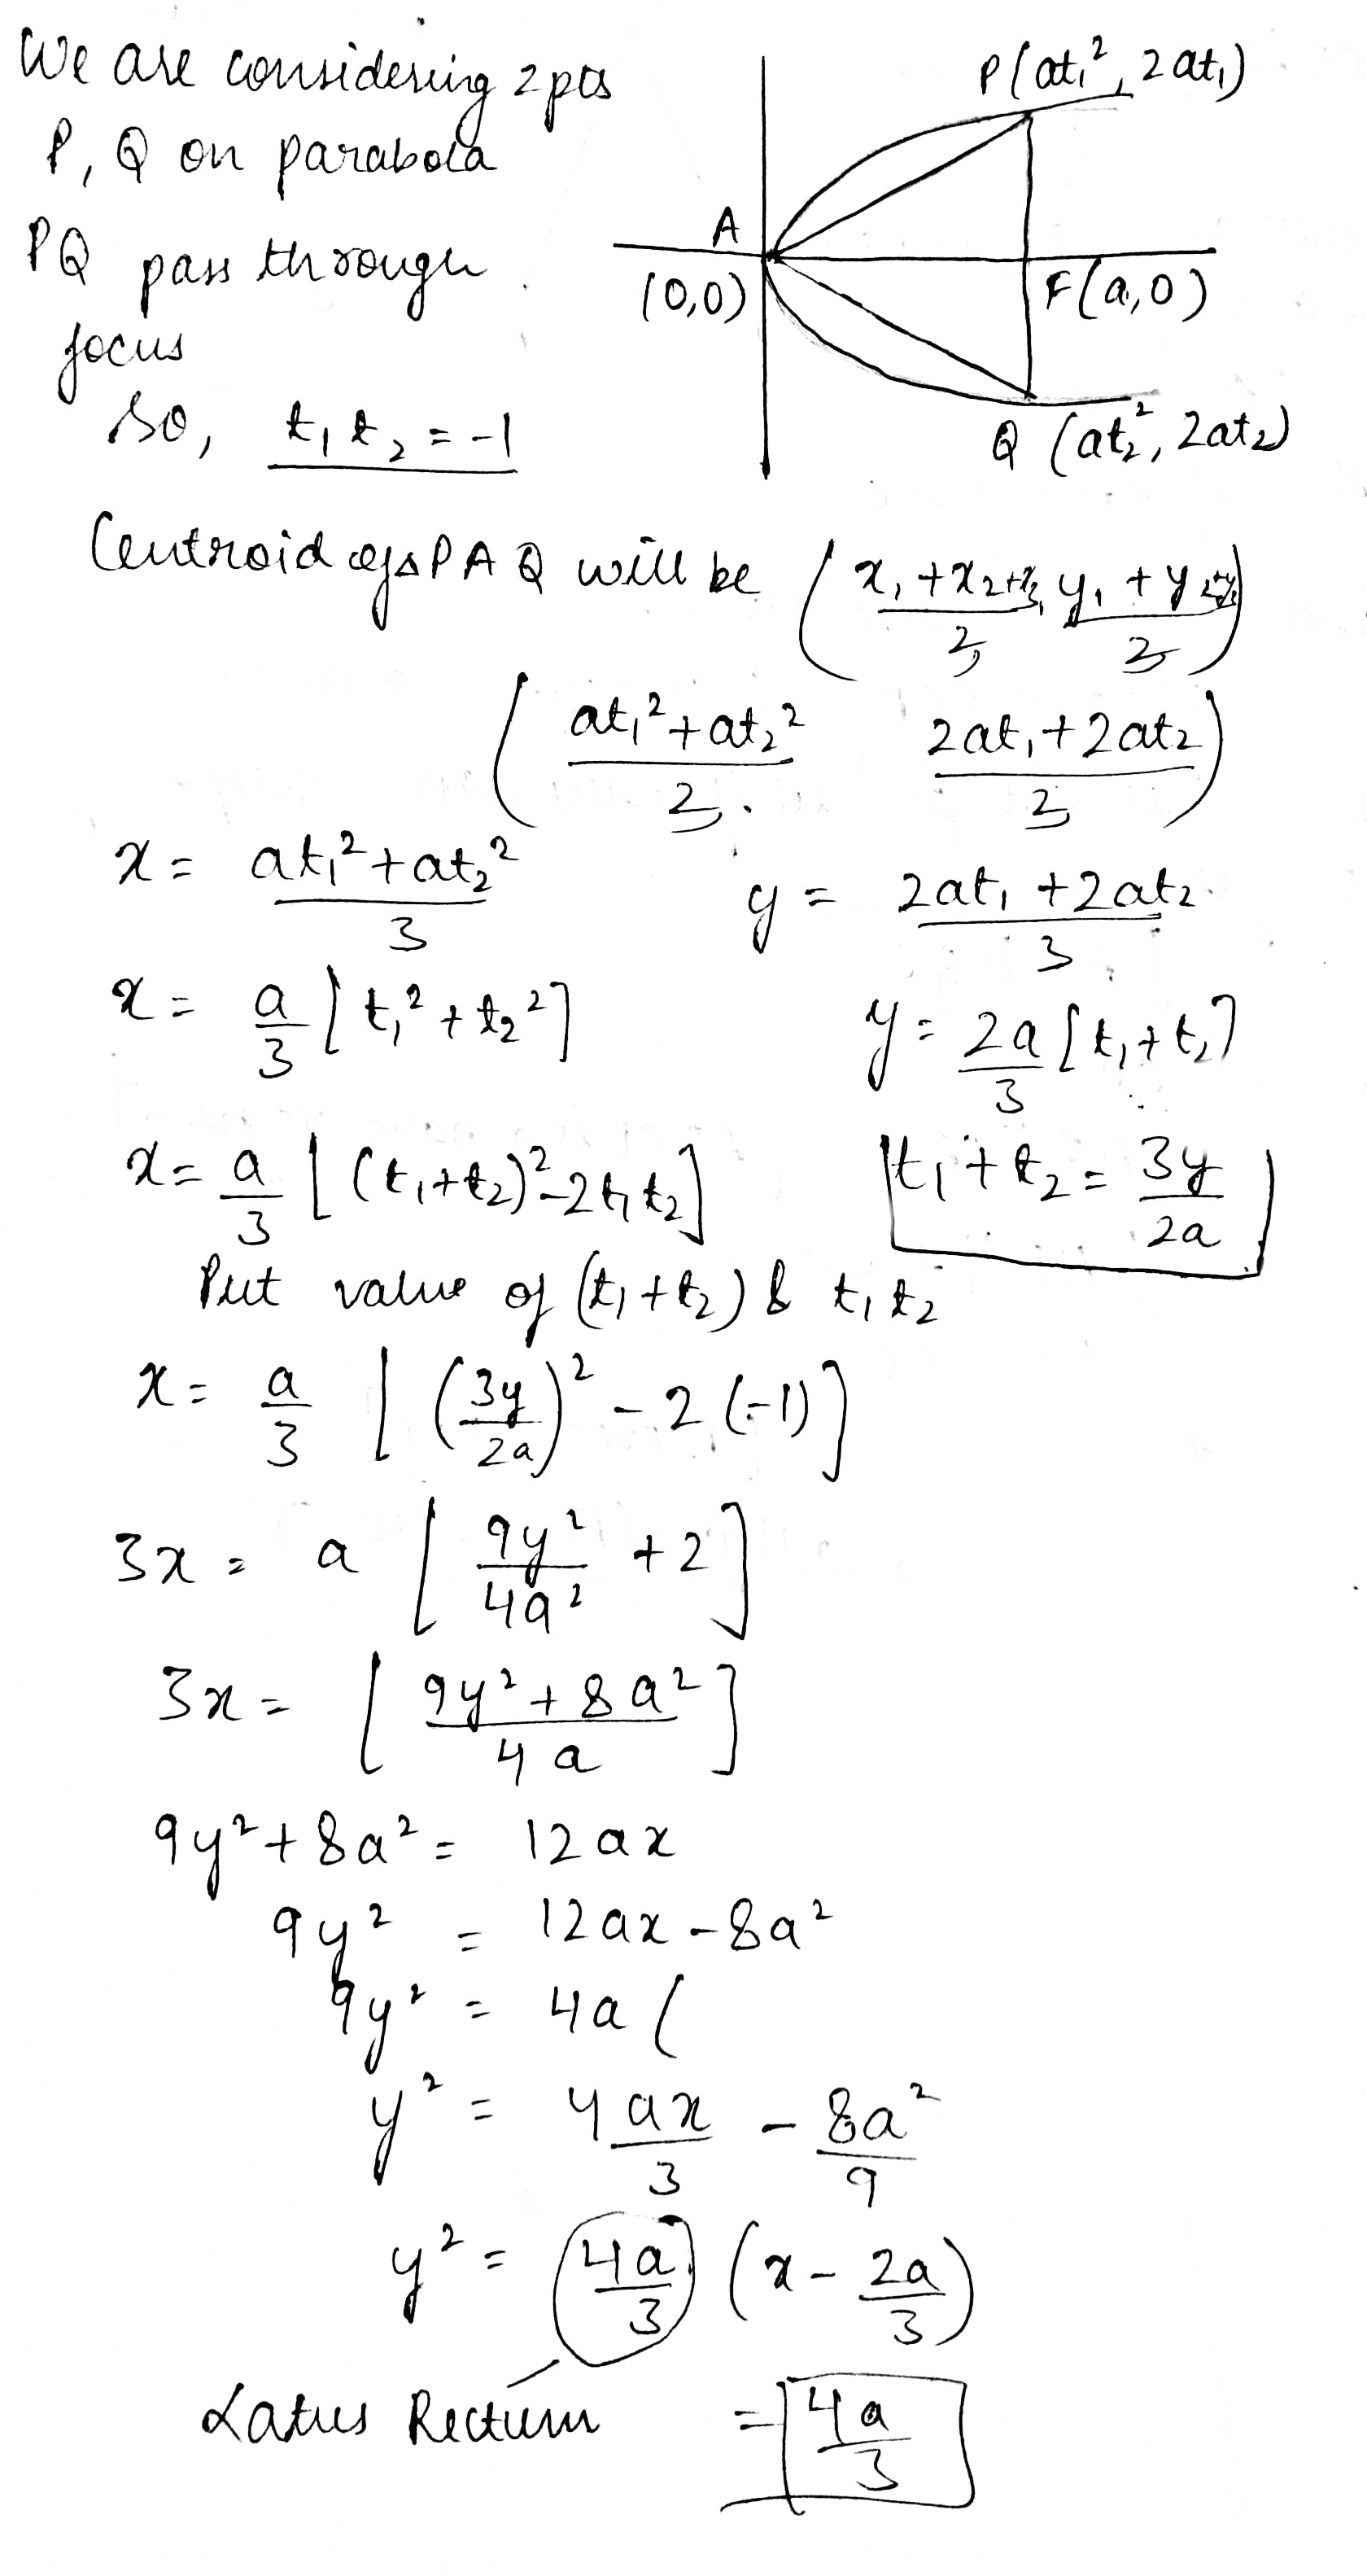 We are considering 2 pts
P, Q on parabola
PQ pass through
focus
So, t₁t₂ = -1
P(at₁², 2at₁)
A
(0,0)
F(a,0)
Q (at₂², 2at₂)
Centroid of △PAQ will be ( x₁+x₂+x₃/3, y₁+y₂+y₃/3 )
( at₁²+at₂²/3 2at₁+2at₂/3 )
x = at₁²+at₂²/3 y = 2at₁+2at₂/3
x = a/3 [t₁²+t₂²] y = 2a/3 [t₁+t₂]
x = a/3 [(t₁+t₂)²-2t₁t₂] t₁+t₂ = 3y/2a
Put value of (t₁+t₂) & t₁t₂
x = a/3 [(3y/2a)² - 2(-1)]
3x = a [9y²/4a² + 2]
3x = [9y²+8a²/4a]
9y²+8a² = 12ax
9y² = 12ax-8a²
9y² = 4a(
y² = 4ax/3 - 8a²/9
y² = 4a/3 (x - 2a/3)
Latus Rectum = 4a/3